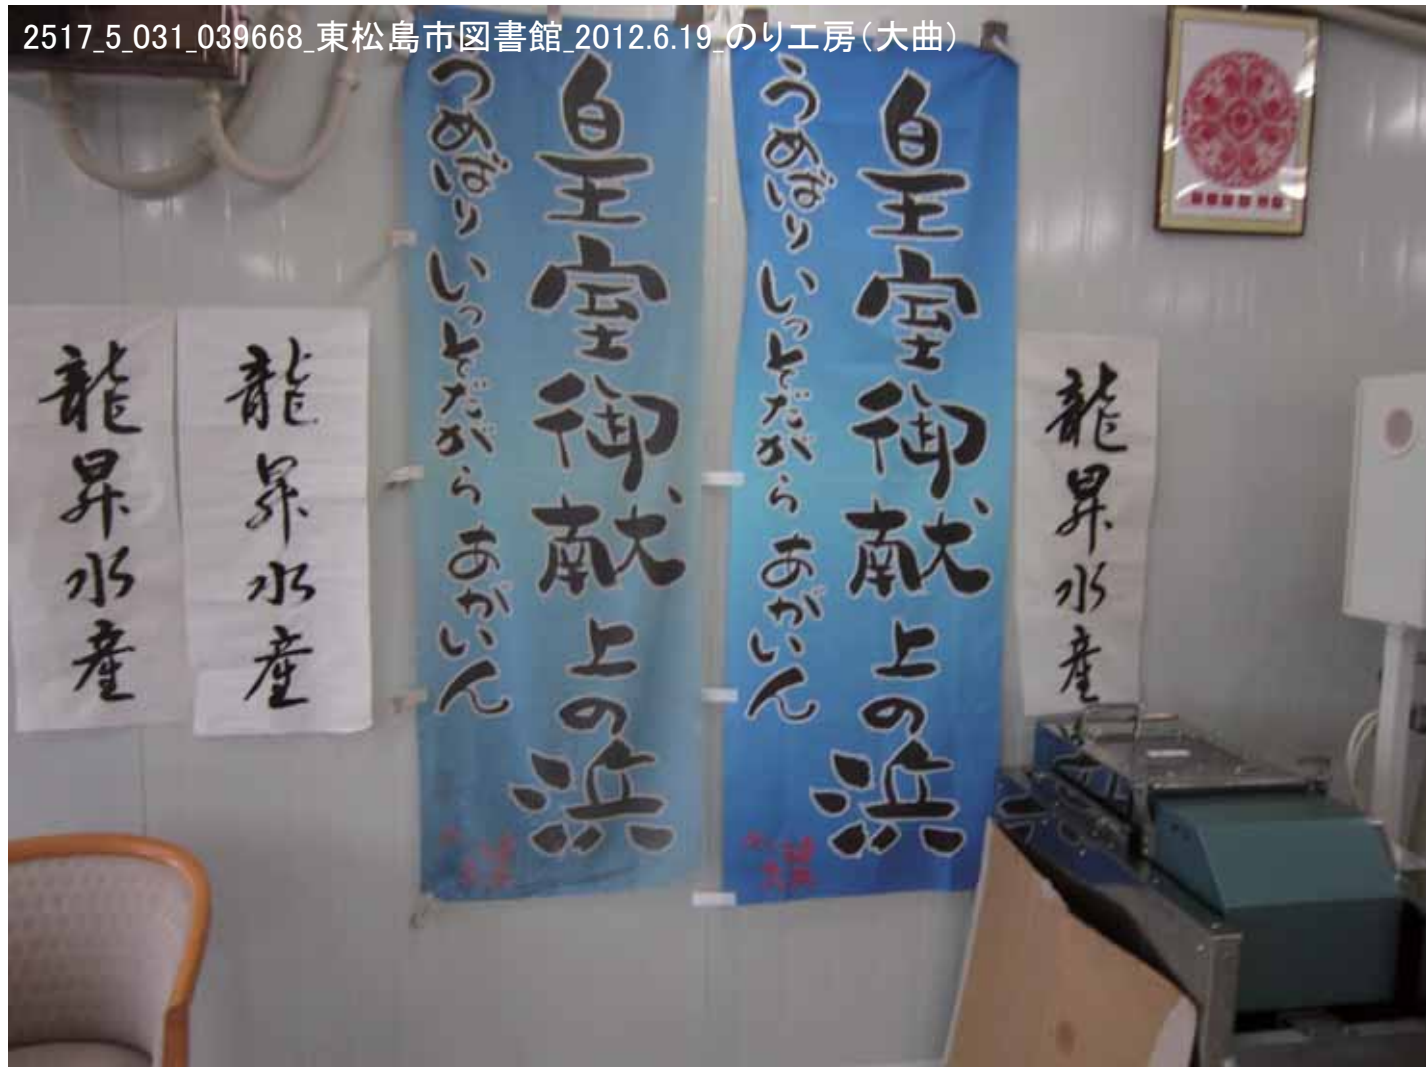 2517_5_031_039668_東松島市図書館_2012.6.19_のり工房（大曲）
龍昇水産
龍昇水産
皇室御献上の浜
うめばり いっとだがら あがいん
皇室御献上の浜
うめばり いっとだがら あがいん
龍昇水産